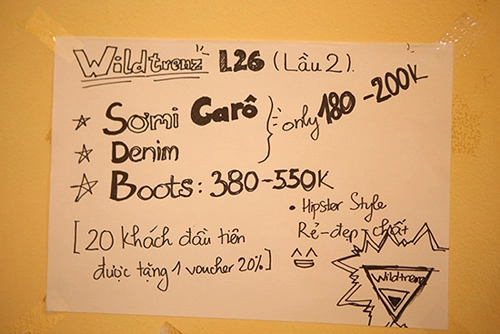 Wildtrenz L26 (Lầu 2).
☆ Sơmi Carô
☆ Denim
only 180-200K
☆ Boots: 380-550K
• Hipster Style
Rẻ-đẹp-chất
[20 khách đầu tiên
được tặng 1 voucher 20%]
Wildtrenz